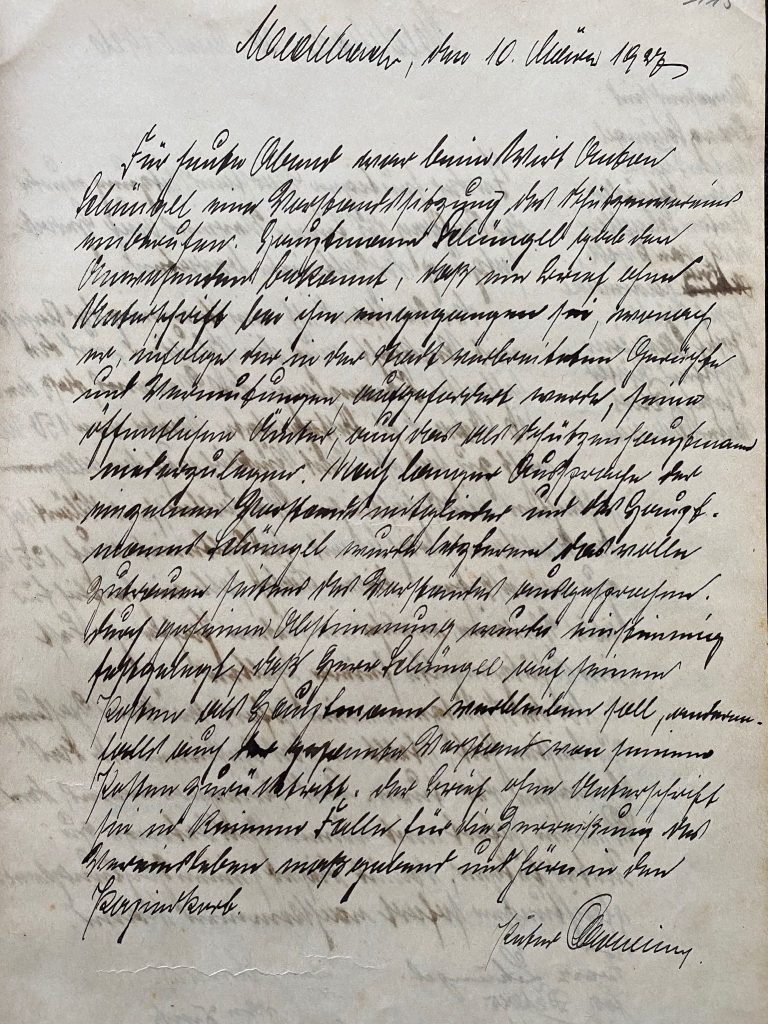 Medebach, den 10. März 1927
Für heute Abend war beim Wirt Anton
Schüngel eine Vorstandssitzung des Schützenvereins
einberufen. Hauptmann Schüngel gab den
Anwesenden bekannt, daß ein Brief ohne
Unterschrift bei ihm eingegangen sei, wonach
er, infolge der in der Stadt verbreiteten Gerüchte
und Vermutungen, aufgefordert werde, seine
öffentlichen Ämter, auch das als Schützenhauptmann
niederzulegen. Nach langer Aussprache der
einzelnen Vorstandsmitglieder und des Haupt-
manns Schüngel wurde letzterem das volle
Zutrauen seitens des Vorstandes ausgesprochen.
Durch geheime Abstimmung wurde einstimmig
festgelegt, daß Herr Schüngel auf seinem
Posten als Hauptmann verbleiben soll, anderen-
falls auch der gesamte Vorstand von seinem
Posten zurücktritt. Der Brief ohne Unterschrift
sei in keinem Falle für die Zerreißung des
Vereinsleben maßgebend und höre in den
Papierkorb.